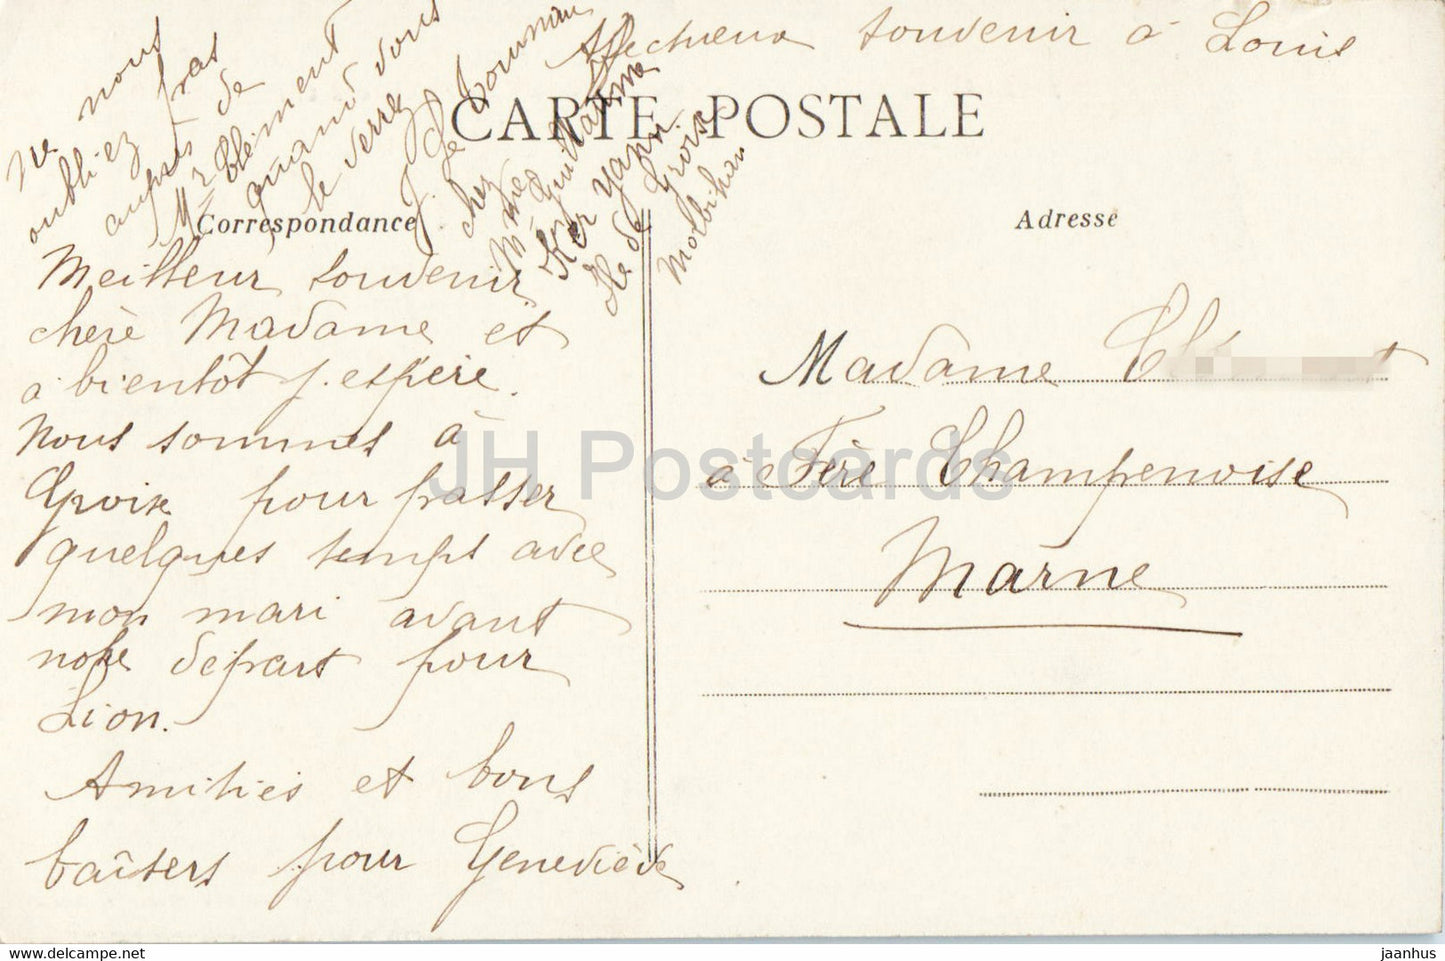 Affectueux souvenir à Louis
CARTE POSTALE
Correspondance
Adresse
Ne nous
oubliez pas
auprès de
Mr Clément
quand vous
le verrez
J. Le Tournan
chez
Mme
Guillaume
Ker Yann
Ile de Groix
Morbihan
Meilleur souvenir
chère Madame et
à bientôt j'espère.
Nous sommes à
Groix pour passer
quelques temps avec
mon mari avant
notre départ pour
Lion.
Amitiés et bons
baîsers pour Geneviève
Madame
à Fère Champenoise
Marne
JH Postcards
https://www.delcampe.net
jaanhus